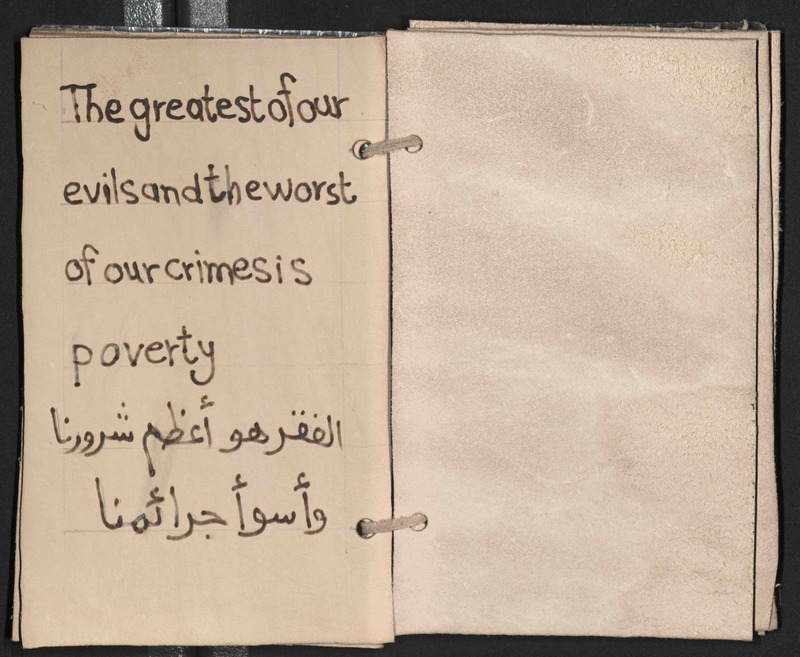 The greatest of our
evils and the worst
of our crimes is
poverty
الفقر هو أعظم شرورنا
وأسوأ جرائمنا